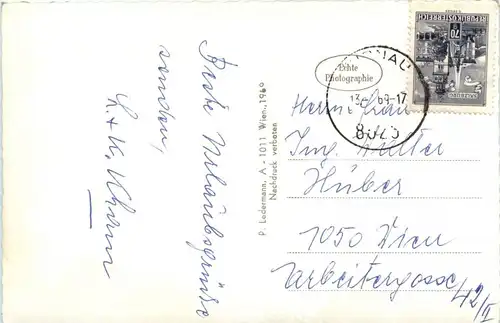 Beste Urlaubsgrüße
senden,
L. + K. Kham
P. Ledermann, A - 1011 Wien, 1969
Nachdruck verboten
Echte
Photographie
REPUBLIK ÖSTERREICH
70
13. 69-17
Herrn Frau
Ing. Walter
Huber
1050 Wien
Arbeitergasse 42/II